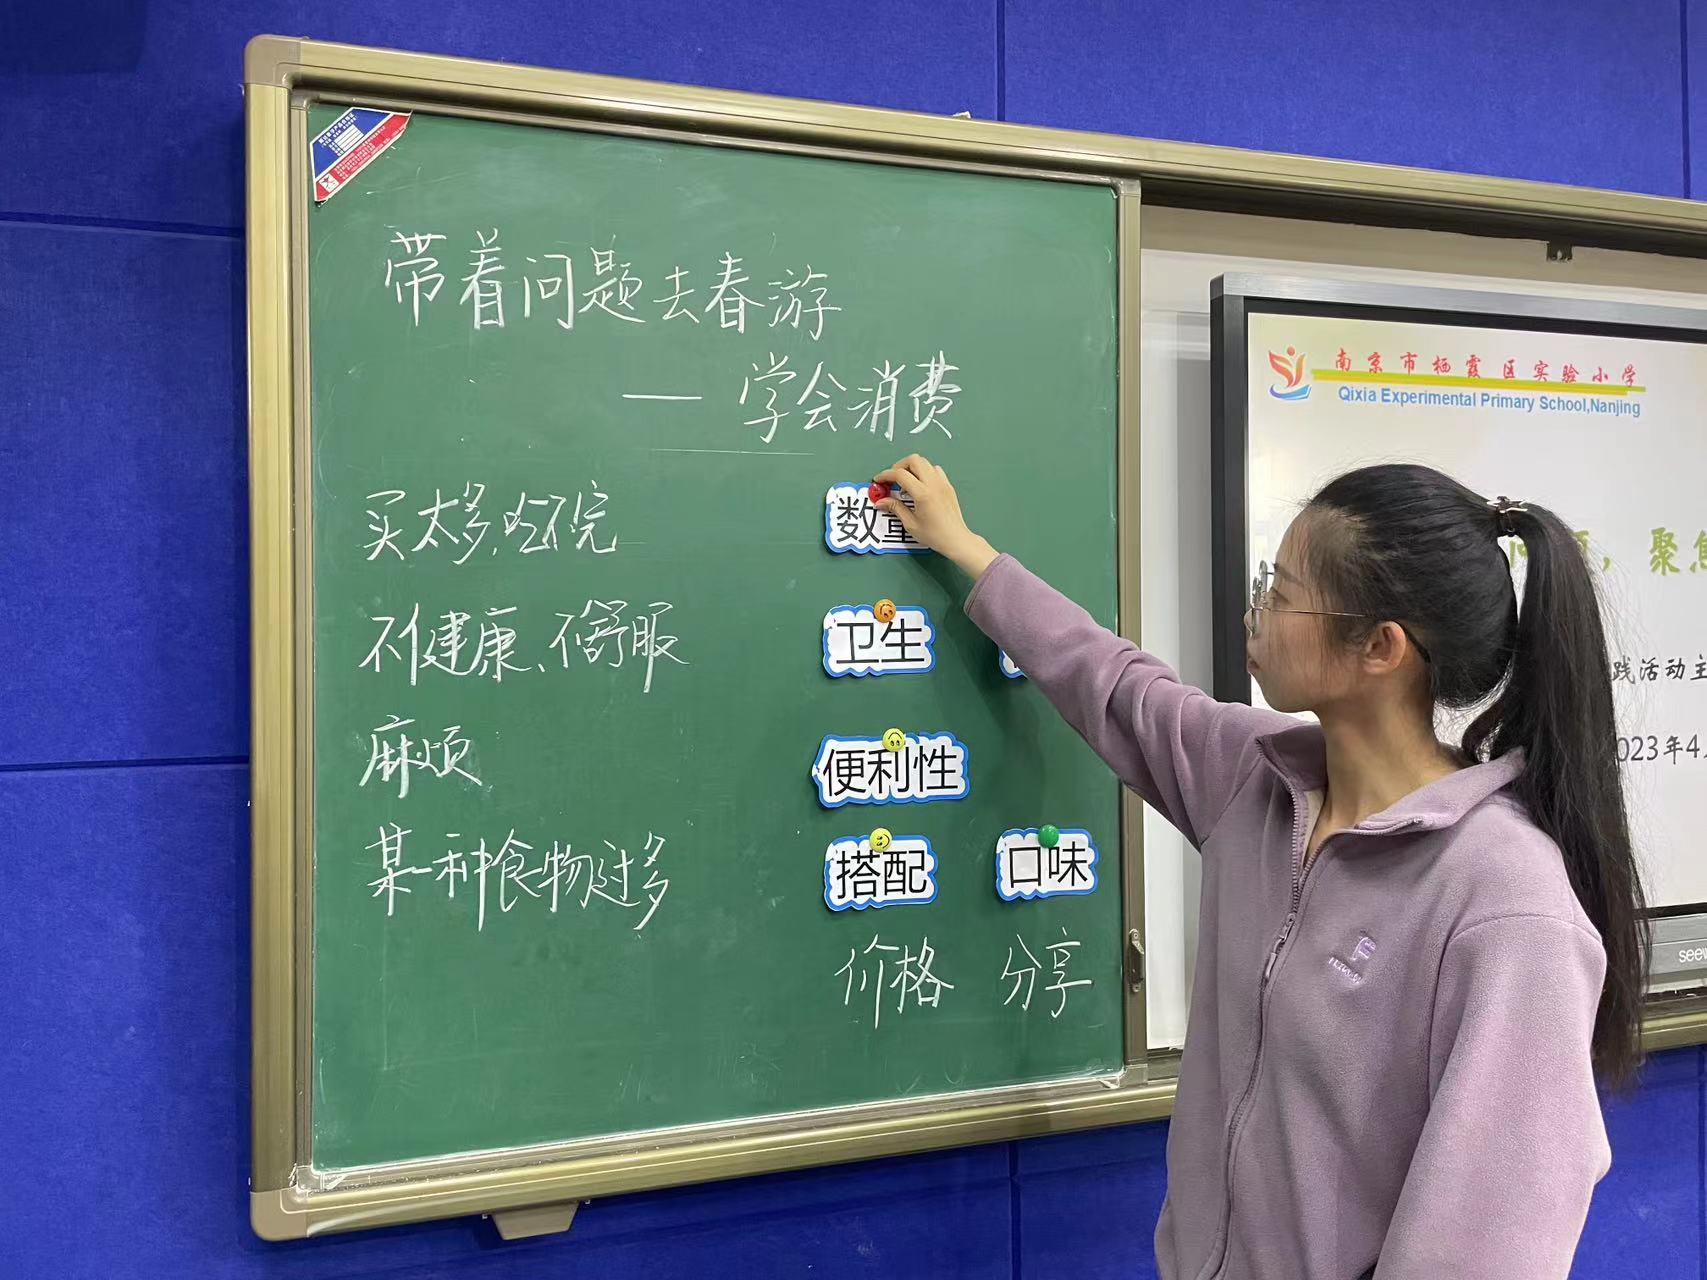 带着问题去春游
— 学会消费
买太多,吃不完
数量
不健康、不舒服
卫生
麻烦
便利性
某一种食物过多
搭配 口味
价格 分享
南京市栖霞区实验小学
Qixia Experimental Primary School,Nanjing
题，聚焦
践活动主
2023年4
seewo